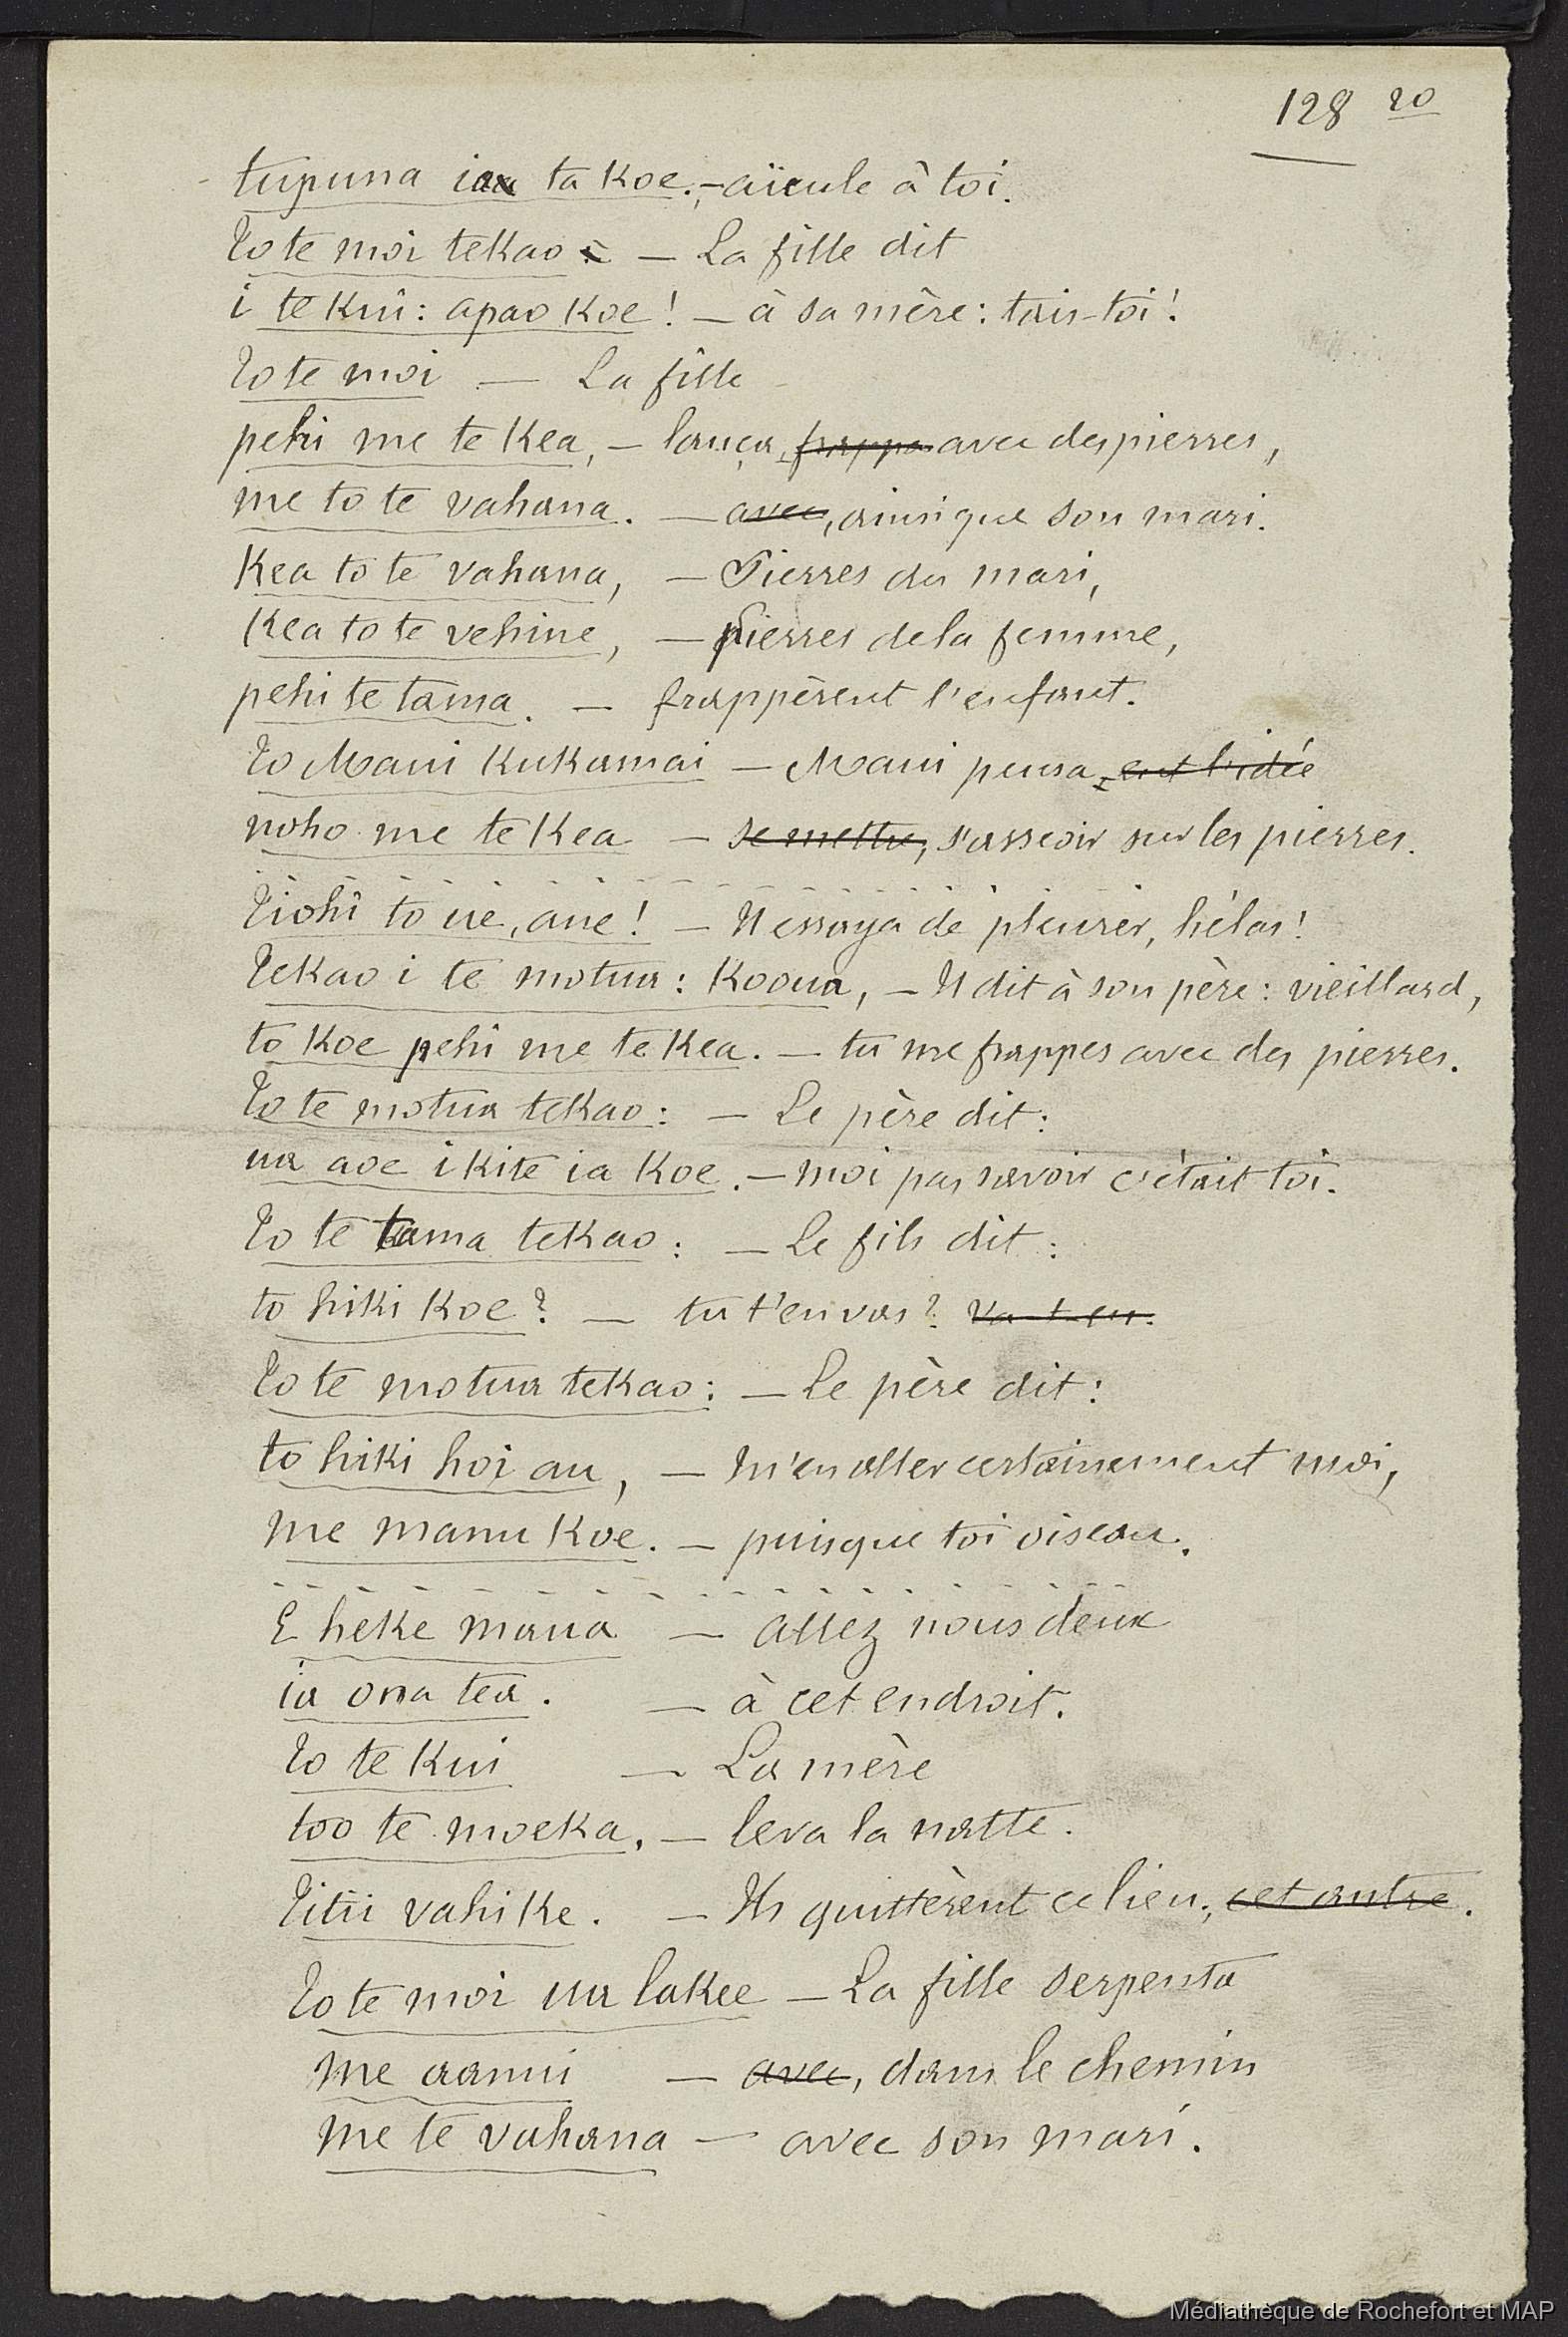 128 20
tupuna iaa ta Koe. - aïeule à toi.
To te moi tekao : — La fille dit
i te Kui : apao Koe ! — à sa mère : tais-toi !
To te moi — La fille
pehi me te Kea, — lança, frappa avec des pierres,
me to te vahana. — avec, ainsi que son mari.
Kea to te vahana, — Pierres du mari,
Kea to te vehine, — pierres de la femme,
pehi te tama. — frappèrent l'enfant.
To Maui Kukamai — Maui pensa, eut l'idée
noho me te Kea — se mettre, s'asseoir sur les pierres.
Tiohi to ue, aue ! — Il essaya de pleurer, hélas !
Tekao i te motua : Kooua, — Il dit à son père : vieillard,
to Koe pehi me te Kea. — tu me frappes avec des pierres.
To te motua tekao : — Le père dit :
ua aoe i kite ia Koe. — moi pas savoir c'était toi.
To te tama tekao : — Le fils dit :
to hiki Koe ? — tu t'en vas ? Va-t-en.
To te motua tekao : — Le père dit :
to hiki hoi au, — m'en aller certainement moi,
me manu Koe. — puisque toi oiseau.
E heke maua — allez nous deux
ia ona tea. — à cet endroit.
To te Kui — La mère
too te moeka, — leva la natte.
Titii vahi Ke. — Ils quittèrent ce lieu, cet antre.
To te moi ua lakee — La fille serpenta
me aanui — avec, dans le chemin
me te vahana — avec son mari.
Médiathèque de Rochefort et MAP